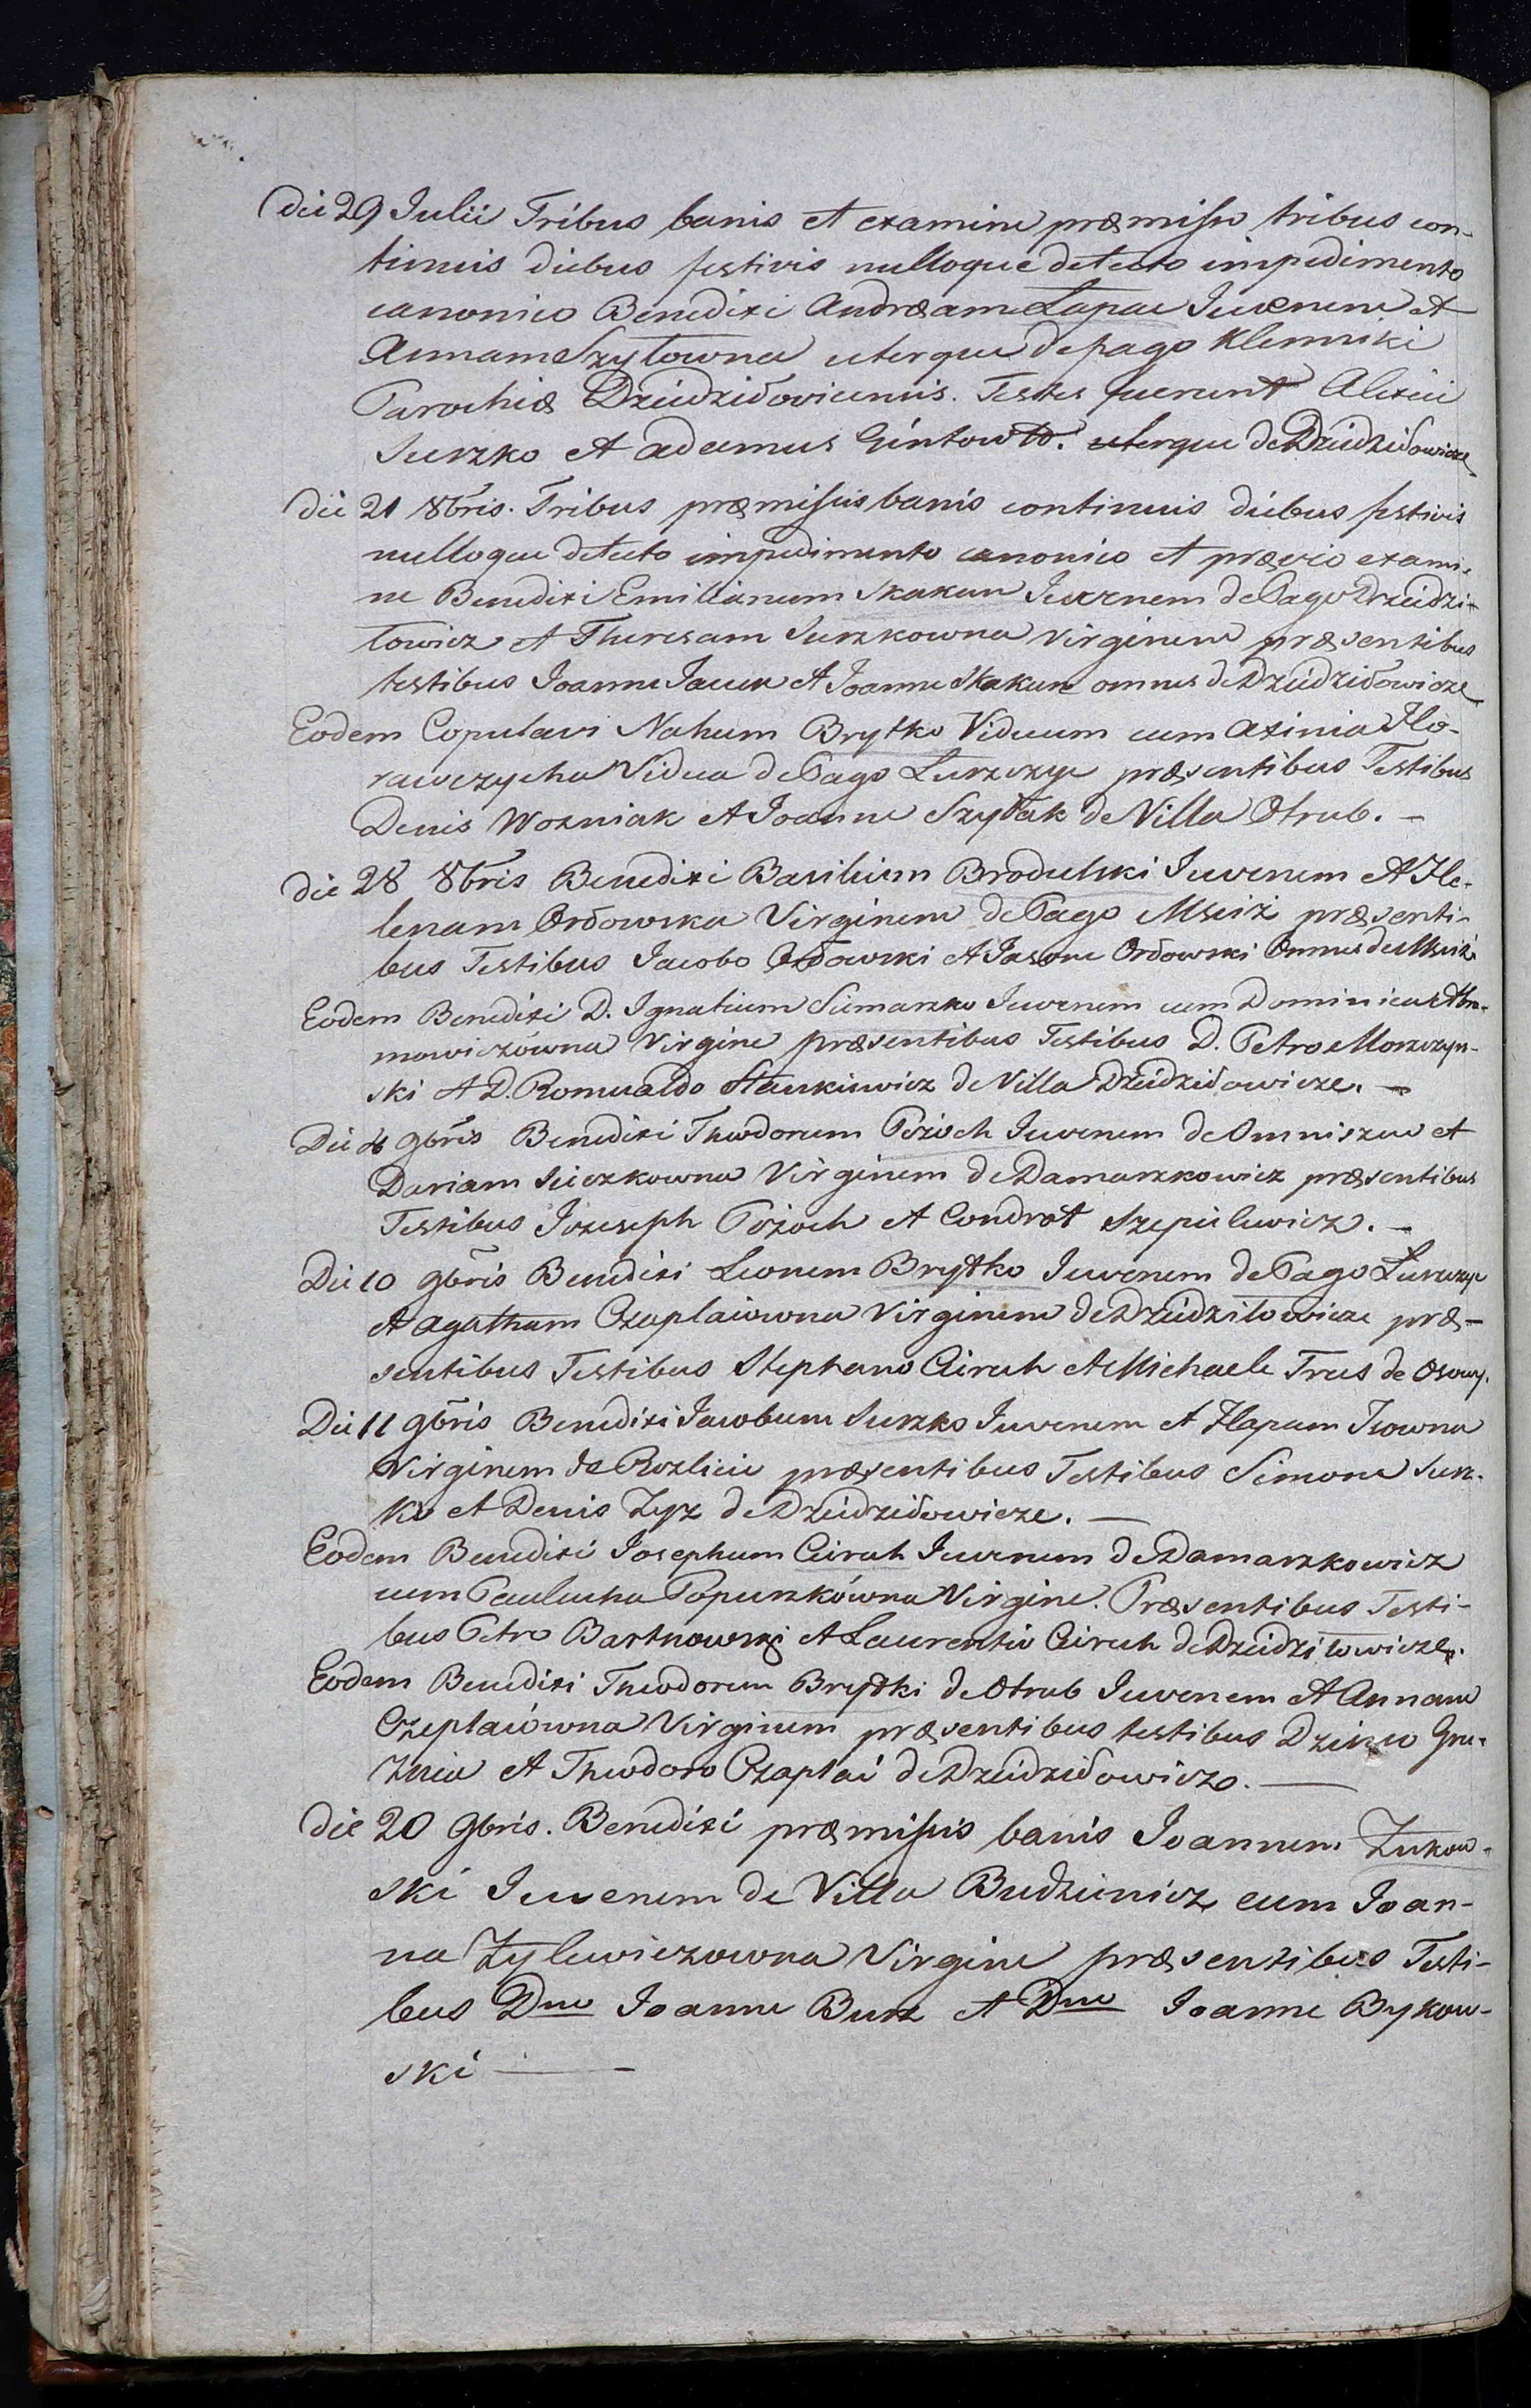 Die 29 Julii Tribus banis et examine præmisso tribus con-
tinuis diebus festivis nulloque detecto impedimento
canonico Benedixi Andræam Łapac Juvenem et
Annam Szyłowna uterque de pago Klenniki
Parochiæ Dziedziłovicensis. Testes fuerunt Alexiei
Surzko et Adamus Gintowtt. uterque de Dziedziłowicze
Die 21 8bris. Tribus præmissis banis continuis diebus festivis
nulloque detecto impedimento canonico et prævio exami-
ne Benedixi Emilianum Skakun Juvenem de Pago Dziedzi-
łowicz et Theresam Surzkowna Virginem præsentibus
testibus Joanne Jacuk et Joanne Skakun omnes de Dziedziłowicze
Eodem Copulavi Nahum Brytko Viduum cum Axinia Ho-
rawczycha Vidua de Pago Łurzczyc præsentibus Testibus
Denis Wozniak et Joanne Szyłak de Villa Otrub. -
Die 28 8bris Benedixi Basilium Brodulski Juvenem et He-
lenam Ordowska Virginem de Pago Msciż præsenti-
bus Testibus Jacobo Ordowski et Jasone Ordowski Omnes de Msciż
Eodem Benedixi D. Ignatium Siemaszko Juvenem cum Dominica Abra-
mowiczówna Virgine præsentibus Testibus D. Petro Morwczyn-
ski et D. Romualdo Stankiewicz de Villa Dziedziłowicze. -
Die 4 9bris Benedixi Theodorum Pożoch Juvenem de Omniszew et
Dariam Sieczkowna Virginem de Damaszkowicz præsentibus
Testibus Jozeseph Pożoch et Condrat Szepielewicz. -
Die 10 9bris Benedixi Leonem Brytko Juvenem de Pago Łurzczyc
et Agatham Czaplaiowna Virginem de Dziedzilowicze præ-
sentibus Testibus Stephano Cieruh et Michaele Trus de Osowy.
Die 11 9bris Benedixi Jacobum Surzko Juvenem et Hapam Isowna
Virginem de Rozlicie præsentibus Testibus Simone Surz-
ko et Denis Zyz de Dziedziłowicze. —
Eodem Benedixi Josephum Cieruh Juvenem de Damaszkowicz
cum Paulucha Popuszkówna Virgine. Præsentibus Testi-
bus Petro Bartnowski et Laurentio Cieruh de Dziedzilowicze.
Eodem Benedixi Theodorum Brytki de Otrub Juvenem et Annam
Czeplaiówna Virginem præsentibus testibus Gru-
et Theodoro Czapłai de Dziedziłowicze. —
Die 20 9bris. Benedixi præmissis banis Joannem Zukow-
ski Juvenem de Villa Budzienicz cum Joan-
na Zylewiczowna Virgine præsentibus Testi-
bus Dno Joanne Busz et Dno Joanne Bykow-
ski —